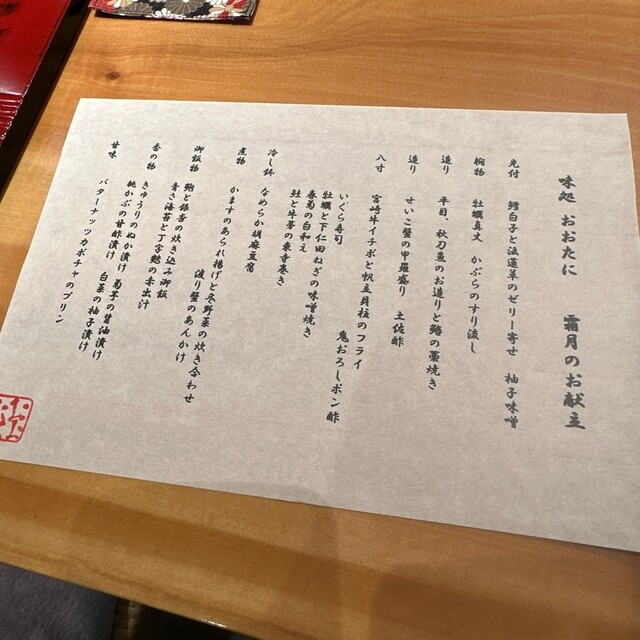 味処 おおたに 霜月のお献立
先付 鱈白子と法蓮草のゼリー寄せ 柚子味噌
椀物 牡蠣真丈 かぶらのすり流し
造り 平目、秋刀魚のお造りと鰆の藁焼き
造り せいこ蟹の甲羅盛り 土佐酢
八寸 宮崎牛イチボと帆立貝柱のフライ 鬼おろしポン酢
いくら寿司
牡蠣と下仁田ねぎの味噌焼き
春菊の白和え
鮭と牛蒡の東寺巻き
冷し鉢 なめらか胡麻豆腐
煮物 かますのあられ揚げと冬野菜の炊き合わせ
渡り蟹のあんかけ
御飯物 鮑と銀杏の炊き込み御飯
青さ海苔と丁字麩の赤出汁
香の物 きゅうりのぬか漬け 菊芋の醤油漬け
桃かぶの甘酢漬け 白菜の柚子漬け
甘味 バターナッツカボチャのプリン